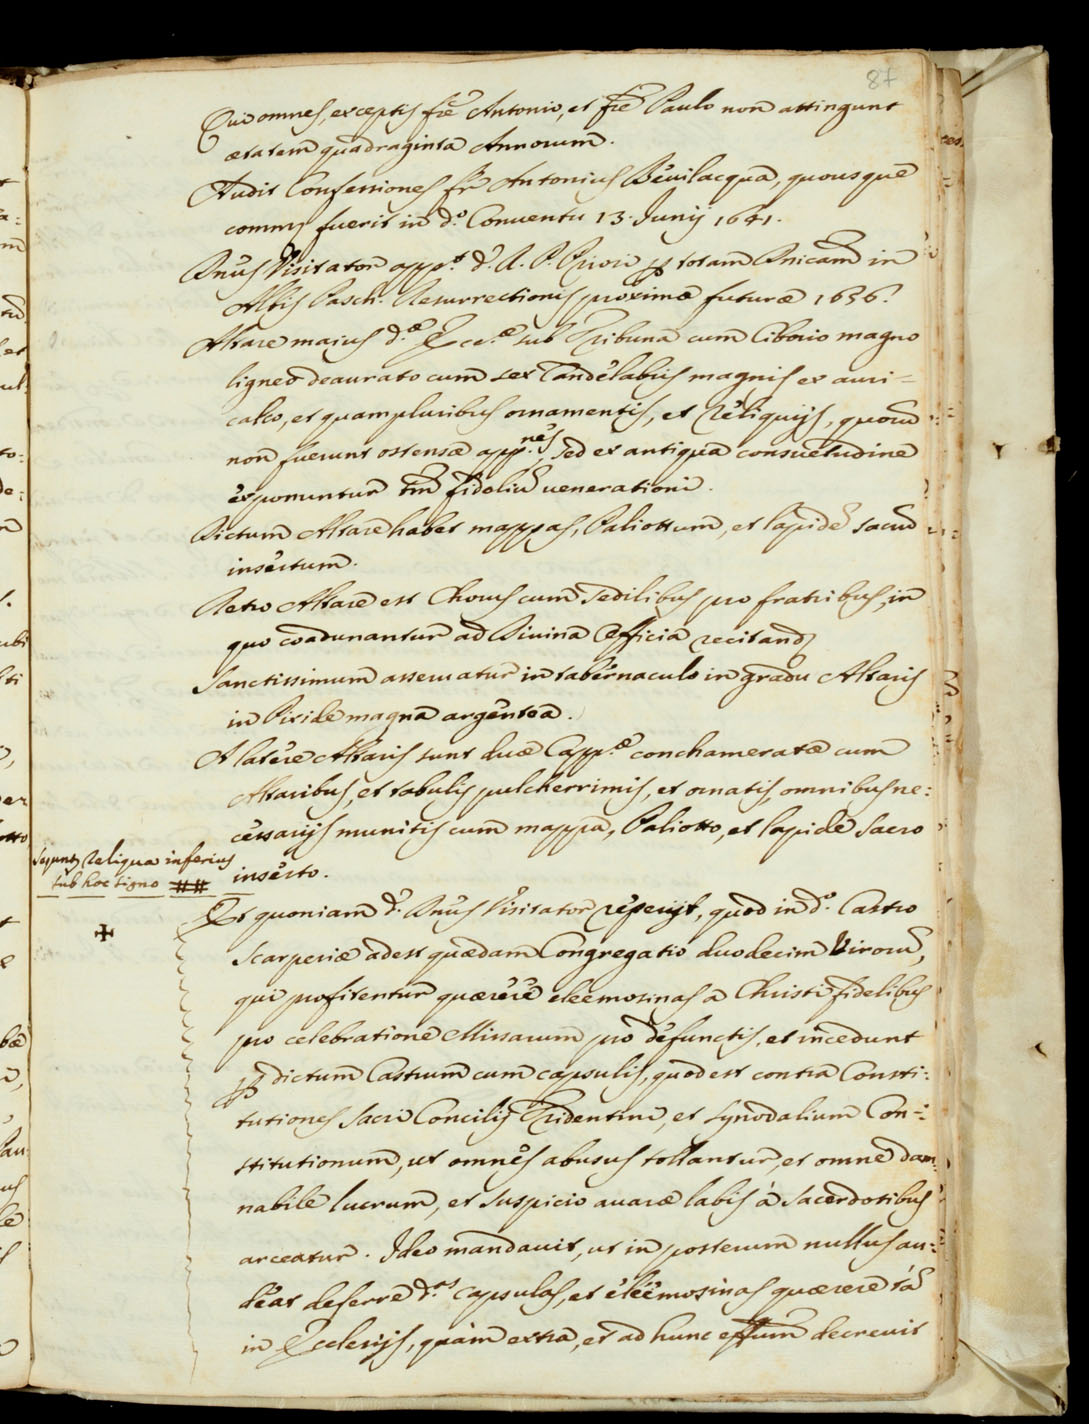 87
Qui omnes, exceptis fr̃e Antonio, et fr̃e Paulo non attingunt
ætatem quadraginta Annorum.
Audit Confessiones fr̃ Antonius Beuilacqua, quousque
comm̃s fuerit in d.º Conuentu 13. Junij 1641.
Dñus Visitator app.t d.º A. P. Priori ꝑ totam Dnicam in
Albis Pasch: Resurrectionis proximæ futuræ 1636.
Altare maius d.æ Ecc.æ sub Tribuna cum Ciborio magno
ligneo deaurato cum sex Candelabris magnis ex auri=
calco, et quampluribus ornamentis, et Reliquijs, quorũ
non fuerunt ostensæ app.nes, sed ex antiqua consuetudine
exponuntur tm̃ fideliũ uenerationi.
Dictum Altare habet mappas, Paliottum, et lapidẽ sacrũ
insertum.
Retro Altare est Chorus cum sedilibus pro fratribus, in
quo coadunantur ad Diuina Officia recitandȝ
Sanctissimum asseruatur in tabernaculo in gradu Altaris
in Piside magna argentea.
A latere Altaris sunt duæ Capp.æ conchameratæ cum
Altaribus, et tabulis pulcherrimis, et ornatis, omnibus ne:
cessarijs munitis cum mappa, Paliotto, et lapide Sacro
inserto.
Seqũnt Reliqua inferius
sub hoc signo ##
✠
Et quoniam d.º Dñus Visitator reperijt, quod in d.º Castro
Scarperiæ adest quædam Congregatio duodecim Virorũ,
qui profitentur quærere eleemosinas a Christi fidelibus
pro celebratione Missarum pro defunctis, et incedunt
ꝑ dictum Castrum cum capsulis, quod est contra Consti:
tutiones Sacri Concilij Tridentini, et Synodalium Con=
stitutionum, ut omnes abusus tollantur, et omne dam:
nabile lucrum, et suspicio auaræ labis à Sacerdotibus
arceatur. Ideo mandauit, ut in posterum nullus au:
deat deferre d.as capsulas, et eleemosinas quærere tã
in Ecclesijs, quàm extra, et ad hunc effum decreuit